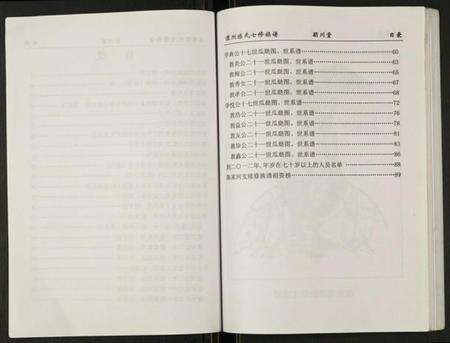 州陈氏七修族谱 颍川堂 目录
学典公十七世瓜瓞图、世系谱 60
教美公二十一世瓜瓞图、世系谱 63
教 公二十一世瓜瓞图、世系谱 65
教秀公二十一世瓜瓞图、世系谱 67
教孝公二十一世瓜瓞图、世系谱 68
学悦公十七世瓜瓞图、世系谱 72
教浩公二十一世瓜瓞图、世系谱 76
教益公二十一世瓜瓞图、世系谱 78
教友公二十一世瓜瓞图、世系谱 81
教珍公二十一世瓜瓞图、世系谱 83
教嘉公二十一世瓜瓞图、世系谱 86
到二〇一二年，年岁在七十岁以上的人员名单 88
陈家河支续修族谱捐资榜 89